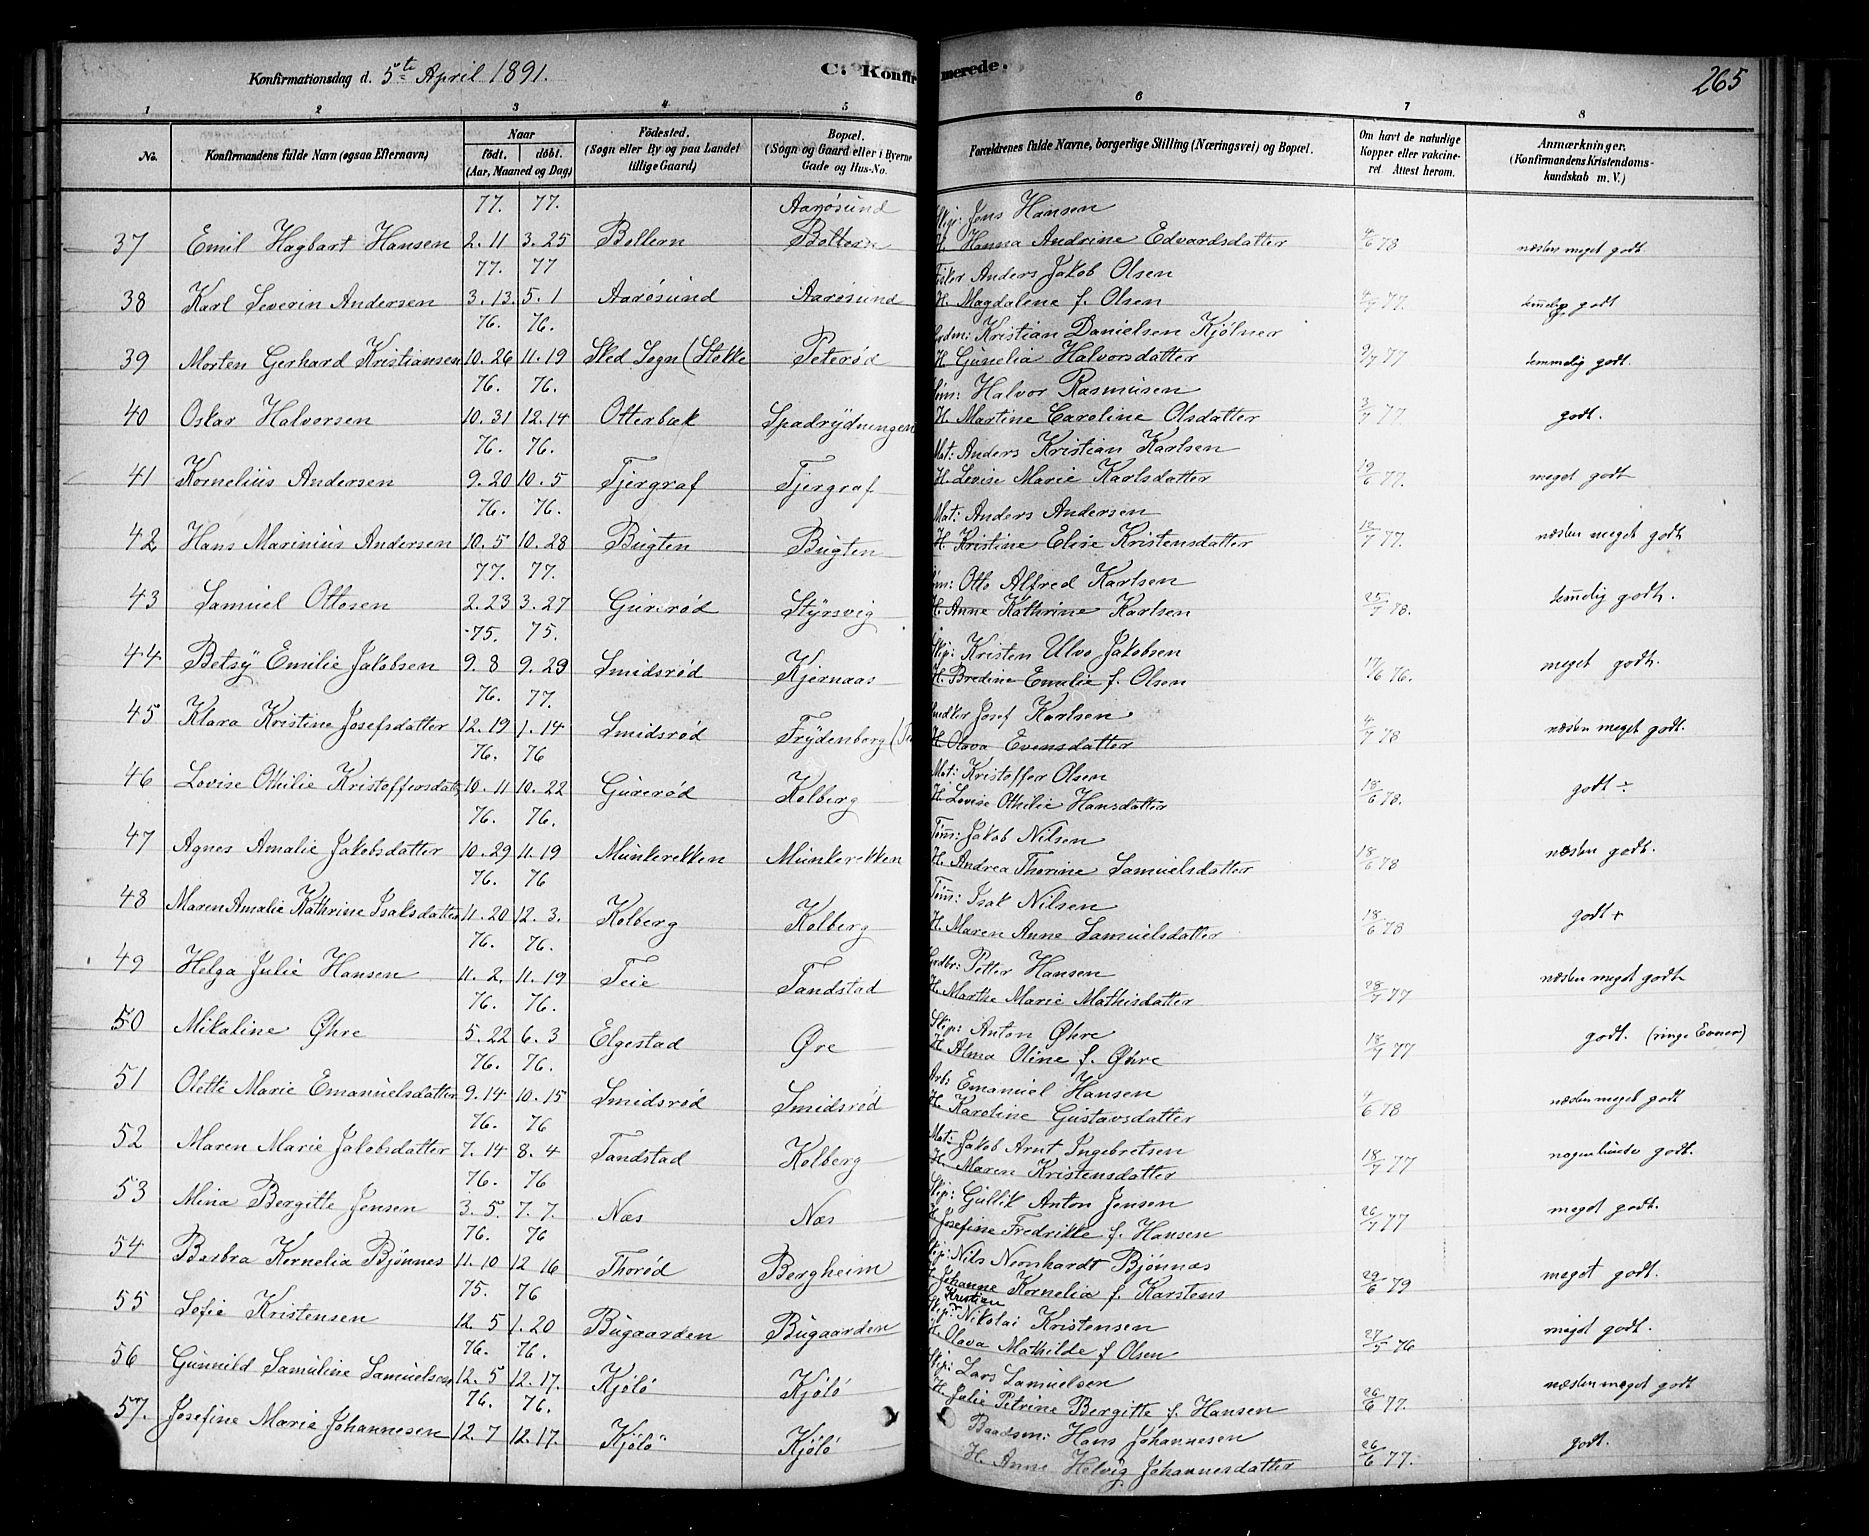 Konfirmationsdag d. 5te April 1891.
C. Konfirmerede.
265
1 2 3 4 5 6 7 8
No. Konfirmandens fulde Navn (ogsaa Efternavn) Naar født. døbt. (Aar, Maaned og Dag) Fødested. (Sogn eller By og paa Landet tillige Gaard) Bopæl. (Sogn og Gaard eller i Byerne Gade og Hus-No. Forældrenes fulde Navne, borgerlige Stilling (Næringsvei) og Bopæl. Om havt de naturlige Kopper eller vakcineret Attest herom. Anmærkninger. (Konfirmandens Kristendomskundskab m. V.)
77. 77. Aarøsund Skip: Jens Hansen
37 Emil Hagbart Hansen 2. 11 3. 25 Bollern Boltern H. Hanna Andrine Edvardsdatter 4/6 78 næsten meget godt
77. 77 Fisker Anders Jakob Olsen
38 Karl Severin Andersen 3. 13. 5. 1 Aarøsund Aarøsund H. Magdalene f. Olsen 77. temmelig godt
76. 76. Kristian Danielsen Kjølner
39 Morten Gerhard Kristiansen 10. 26 11. 19 Sled Sogn (Stokke Peterød H. Gunelia Halvorsdatter 9/7 77 temmelig godt.
76. 76. Tøm: Halvor Rasmusen
40 Oskar Halvorsen 10. 31 12. 14 Otterbæk Spadrydningen H. Martine Caroline Olsdatter 3/7 77. godt.
76. 76. Mat: Anders Kristian Karlsen
41 Kornelius Andersen 9. 20 10. 5 Tjergraf Tjergraf H. Lovise Marie Karlsdatter 19/6 77. meget godt
76. 76. Mat: Anders Andersen
42 Hans Marinius Andersen 10. 5 10. 28 Bugten Bugten H. Kristine Elise Kristensdatter 13/7 77. næsten meget godt
77. 77. Tøm: Otto Alfred Karlsen
43 Samuel Ottosen 2. 23 3. 27 Gurerød Styrsvig H. Anne Kathrine Karlsen 25/7 78. temelig godt.
75. 75. Skip: Kristen Ulvo Jakobsen
44 Betsy Emilie Jakobsen 9. 8 9. 29 Smidsrød Kjernaas H. Bredine Emalie f. Olsen 17/6 76. meget godt.
76. 77. Snedker Josef Karlsen
45 Klara Kristine Josefsdatter 12. 19 1. 14 Smidsrød Frydenberg H. Olava Evensdatter 4/7 78 næsten meget godt.
76. 76 Mat: Kristoffer Olsen
46 Lovise Othilie Kristoffersdatt 10. 11 10. 22 Gurerød Kolberg H. Lovise Othilie Hansdatter 18/6 78. godt ÷
76. 76. Tøm: Jakob Nilsen
47 Agnes Amalie Jakobsdatter 10. 29 11. 19 Munkerekken Munkerekken H. Andrea Thorine Samuelsdatter 18/6 78 næsten godt.
76. 76 Tøm: Isak Nilsen
48 Maren Amalie Kathrine Isaksdatter 11. 20 12. 3. Kolberg Kolberg H. Maren Anne Samuelsdatter 18/6 78 godt +
76. 76. Grdbr: Petter Hansen
49 Helga Julie Hansen 11. 2. 11. 19 Teie Tandstad H. Marthe Marie Mathisdatter 28/7 77 næsten meget godt
76. 76. Skip: Anton Øhre
50 Mikaline Øhre 5. 22 6. 3 Elgestad Øre H. Alma Oline f. Øhre 18/7 77 godt. (ringe Evner)
76. 76. Arb: Emanuel Hansen
51 Olette Marie Emanuelsdatter 9. 14 10. 15 Smidsrød Smidsrød H. Karoline Gustavsdatter 4/6 78 næsten meget godt
76. 76 Mat: Jakob Arnt Ingebretsen
52 Maren Marie Jakobsdatter 7. 14 8. 4 Tandstad Kolberg H. Maren Kristensdatter 18/7 77 nogenlunde godt.
76. 76 Skip: Gullik Anton Jensen
53 Mina Bergitte Jensen 3. 5. 7. 7. Næs Næs H. Josefine Fredrikke f. Hansen 26/7 77 meget godt.
76. 76 Skip: Nils Neonhardt Bjønnæs
54 Barbra Kornelia Bjønnes 11. 10 12 16 Thorød Bergheim H. Johanne Kornelia f. Karstens 29/6 79 meget godt.
75. 76 Skip: Kristian Nikolai Kristensen
55 Sofie Kristensen 12. 5 1. 20 Bugaarden Bugaarden H. Olava Mathilde f Olsen 27/5 76 meget godt.
76. 76. Skip: Lars Samuelsen
56 Gunnild Samuline Samuelsen 12. 5 12. 17. Kjøle Kjølø H. Julie Petrine Bergitte f. Hansen 26/6 77. næsten meget godt
76. 76. Baadsm: Hans Johannesen
57. Josefine Marie Johannesen 12. 7 12. 17. Kjølø Kjølø H. Anne Helvig Johannesdatter 26/6 77. godt.